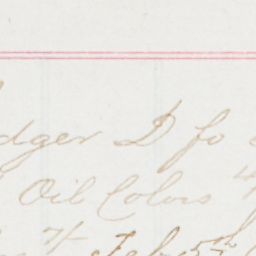 dger D fo
Oil Colors 4
7/ Feb 5th